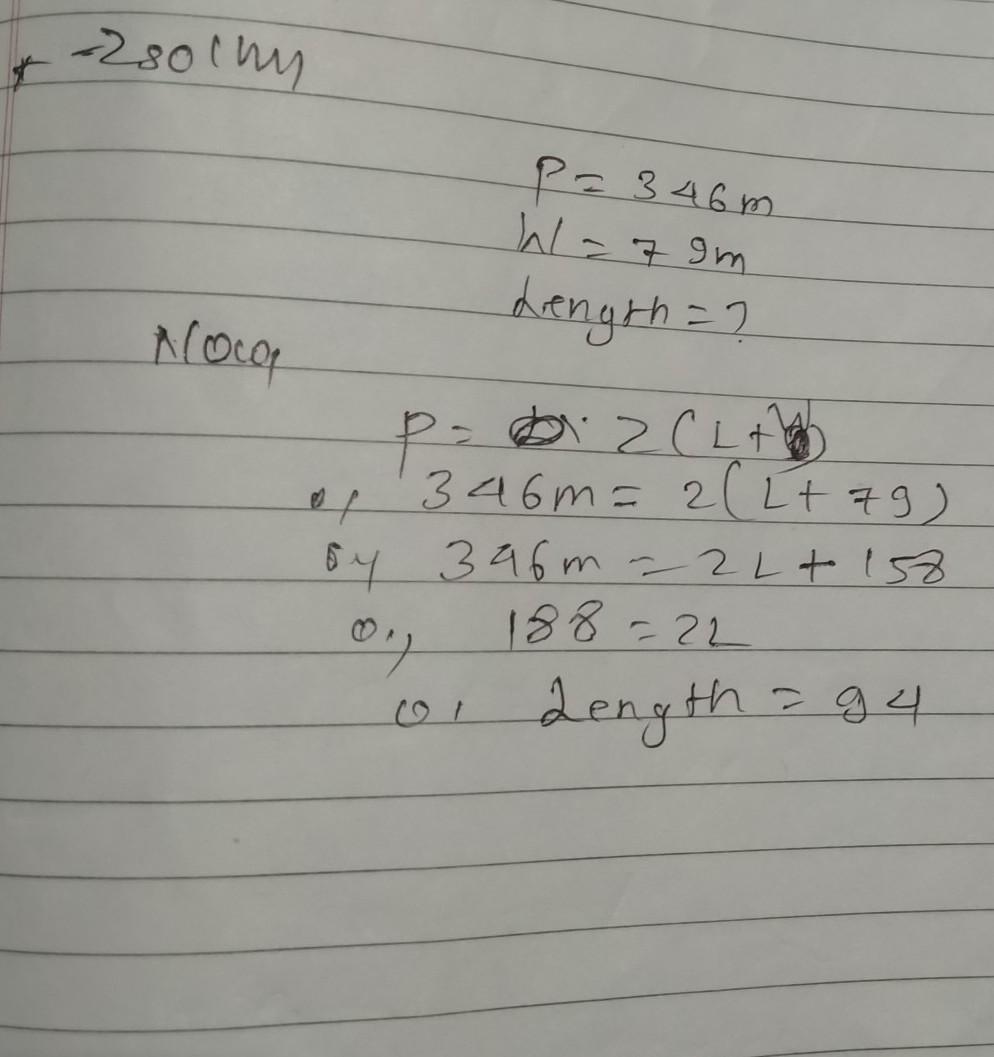 P = 346m
W = 79m
Length = ?
P = 2(L+W)
or, 346m = 2(L+79)
or, 346m = 2L+158
or, 188 = 2L
or, Length = 94